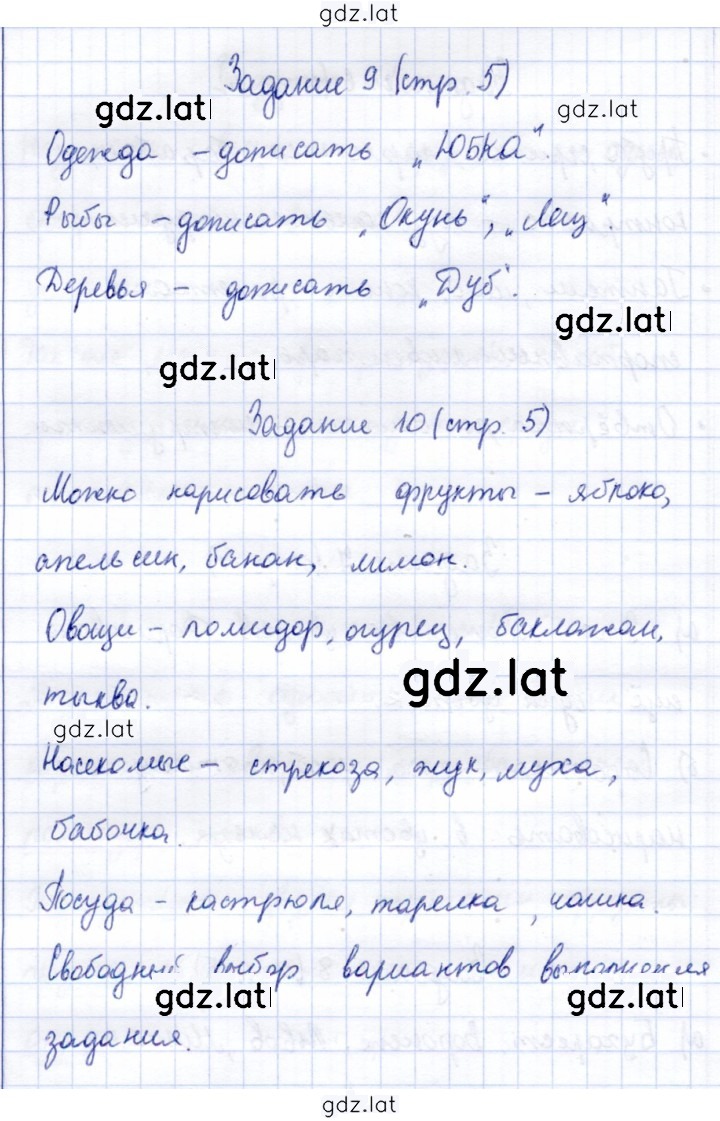 gdz.lat
Задание 9 (стр. 5)
gdz.lat
gdz.lat
Одежда – дописать „Юбка“
Рыбы – дописать „Окунь“, „Лещ“.
Деревья – дописать „Дуб“.
gdz.lat
gdz.lat
Задание 10 (стр. 5)
Можно нарисовать фрукты – яблоко,
апельсин, банан, лимон.
Овощи – помидор, огурец, баклажан,
gdz.lat
тыква.
gdz.lat
Насекомые – стрекоза, жук, муха,
бабочка.
Посуда – кастрюля, тарелка, чашка.
Свободный выбор вариантов выполнения
gdz.lat
gdz.lat
задания.
gdz.lat